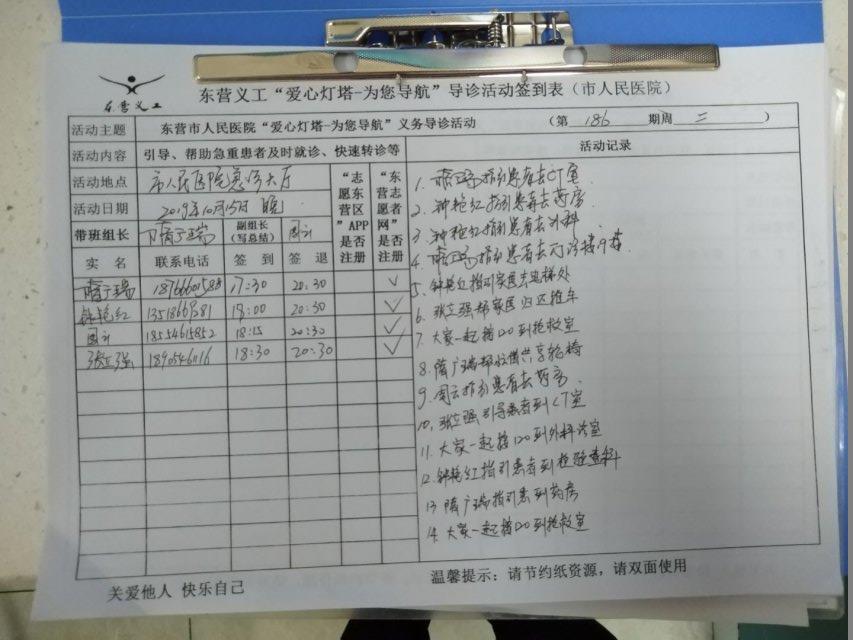 东营义工
东营义工“爱心灯塔-为您导航”导诊活动签到表（市人民医院）
活动主题 东营市人民医院“爱心灯塔-为您导航”义务导诊活动 （第 186 期周 二 ）
活动内容 引导、帮助急重患者及时就诊、快速转诊等
活动地点 市人民医院急诊大厅
活动日期 2019年10月15日 晚
带班组长 隋广瑞 副组长（写总结） 周云
“志愿东营区”APP是否注册
“东营志愿者网”是否注册
实名 联系电话 签到 签退
隋广瑞 18766601588 17:30 20:30 ✓
钟艳红 18:00 20:30 ✓
周云 18:15 20:30 ✓
张立强 18:30 20:30 ✓
活动记录
1. 隋广瑞指引患者去CT室
2. 钟艳红指引患者去药房
3. 钟艳红指引患者去外科
4. 隋广瑞指引患者去门诊接诊
5. 钟艳红指引家医去电梯处
6. 张立强帮家医归还推车
7. 大家一起接120到抢救室
8. 隋广瑞帮忙借共享轮椅
9. 周云指引患者去药房
10. 张立强引导患者到CT室
11. 大家一起接120到外科诊室
12. 钟艳红指引患者到检验查科
13 隋广瑞指引患到药房
14. 大家一起接120到抢救室
关爱他人 快乐自己
温馨提示：请节约纸资源，请双面使用